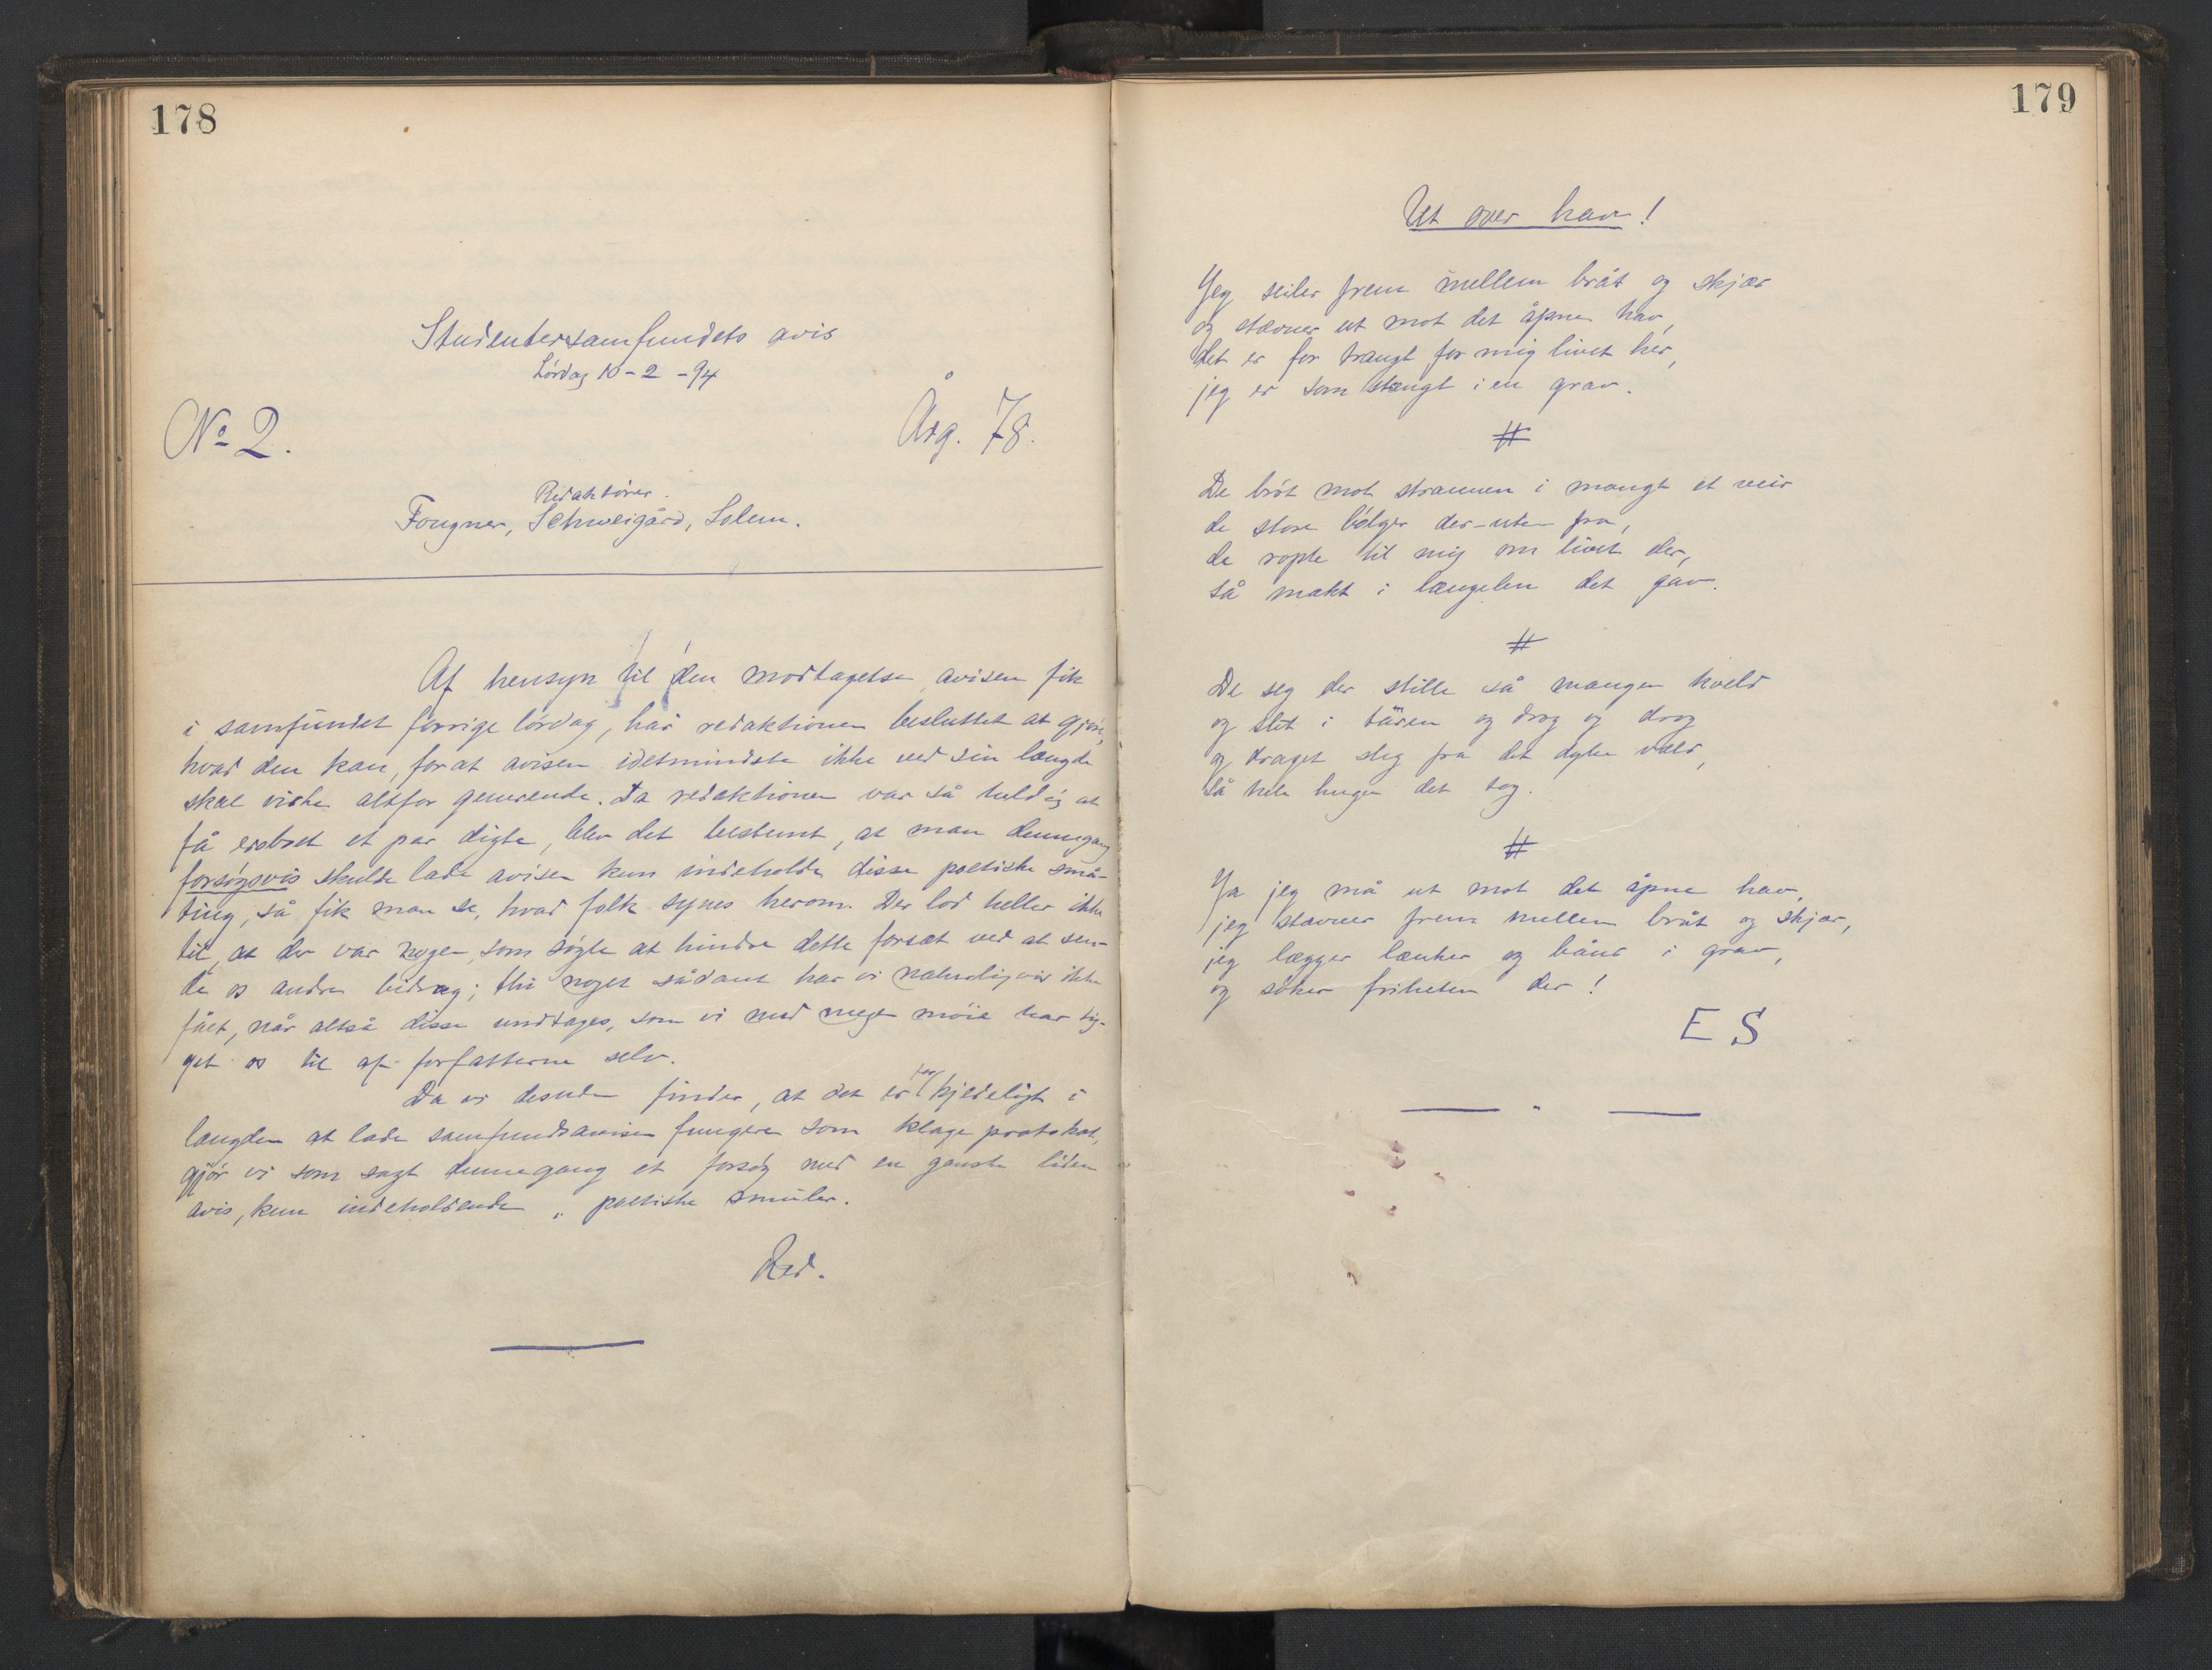 178
Studentersamfundets avis
Lördag 10-2-94
No 2.
Årg. 78.
Redaktörer.
Fougner, Schweigård, Solem.
Af hensyn til den modtagelse avisen fik
i samfundet forrige lördag, har redaktionen besluttet at gjöre,
hvad den kan, forat avisen idetmindste ikke ved sin længde
skal virke altfor generende. Da redaktionen var så heldig at
få et par digte, blev det bestemt, at man dennegang
forsögsvis skulde lade avisen kun indeholde disse poetiske små-
ting, så fik man se, hvad folk synes herom. Der lod heller ikke
til, at der var nogen, som sögte at hindre dette forsæt ved at sen-
de os andre bidrag; thi noget sådant har vi naturligvis ikke
fået, når altså disse undtages, som vi med megen möie har tig-
get os til af forfatterne selv.
Da vi desuden finder, at det er for kjedeligt i
længden at lade samfundsavisen fungere som klageprotokol,
gjör vi som sagt dennegang et forsög med en ganske liden
avis, kun indeholdende „ poetiske smuler.
Red.
179
Ut over hav!
Jeg seiler frem mellem bråt og skjær
og stævner ut mot det åpne hav,
det er for trangt for mig livet her,
jeg er som stængt i en grav.
#
De bröt mot strammen i mangt et veir
de store bölger der-uten fra,
de ropte til mig om livet der,
så makt i længelen det gav.
#
De seg der stille så mangen kveld
og slet i tåren og drog og drog
og draget steg fra det dype væld,
så hele hugen det tog.
#
Ja jeg må ut mot det åpne hav,
jeg stævner frem mellem bråt og skjær,
jeg lægger lænker og bånd i grav,
og söker friheten der!
E S